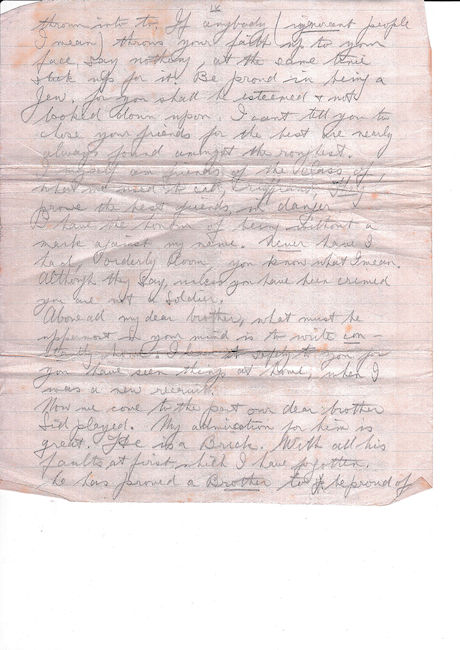 IV
thrown into to. If anybody (ignorant people
I mean) throws your faith up to your
face, say nothing, at the same time
stick up for it. Be proud in being a
Jew. for you shall be esteemed & not
looked down upon. I cant tell you to
close your friends for the best are nearly
always found amongst the roughest.
I myself am friends of the class of,
what we used to call, They
prove the best friends, in danger
I have the honour of being without a
mark against my name. Never have I
had, orderly Room, you know what I mean.
Although they say, unless you have been crimed
you are not a Soldier.
Above all my dear brother, what must be
uppermost in your mind is to write con-
stantly home. I reply to you for
you have seen things at home, when I
was a new recruit.
Now we come to the part our dear brother
Sid played. My admiration for him is
great. He is a Brick. With all his
faults at first which I have forgotten.
He has proved a Brother to be proud of